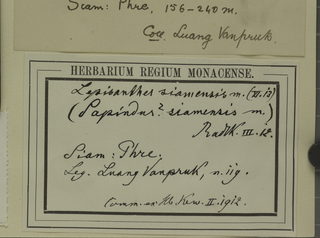 Siam: Phre, 156–240 m.
Coll. Luang Vanpruk.
HERBARIUM REGIUM MONACENSE.
Lepisanthes siamensis m. (VI.13)
(Sapindus? siamensis m.)
Radlk. III. 12.
Siam: Phre,
Leg. Luang Vanpruk, n. 119.
Comm. ex Hb. Kew. II. 1912.